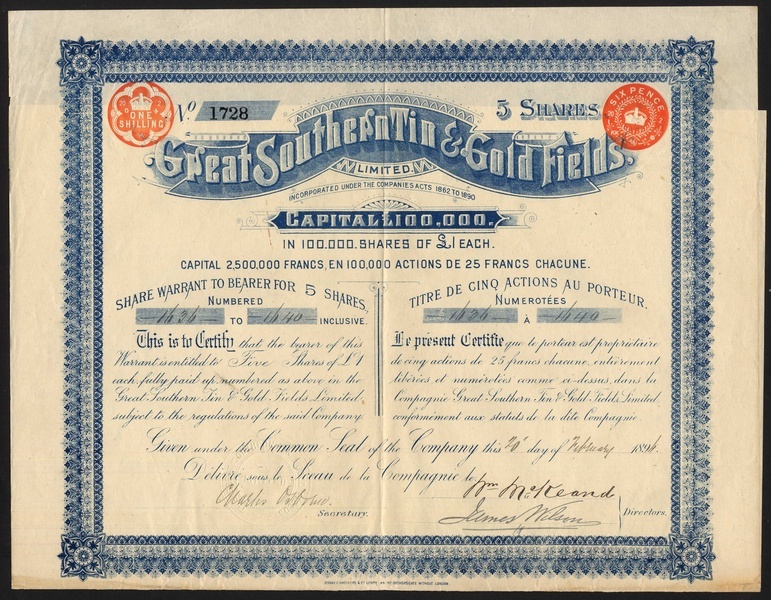 ONE SHILLING
No. 1728
5 SHARES
SIX PENCE
Great Southern Tin & Gold Fields.
LIMITED.
INCORPORATED UNDER THE COMPANIES ACTS 1862 TO 1890
CAPITAL £100,000.
IN 100.000. SHARES OF £1 EACH.
CAPITAL 2,500,000 FRANCS, EN 100,000 ACTIONS DE 25 FRANCS CHACUNE.
SHARE WARRANT TO BEARER FOR 5 SHARES,
NUMBERED
1636 TO 1640 INCLUSIVE.
This is to Certify that the bearer of this
Warrant is entitled to Five Shares of £1
each, fully paid up, numbered as above in the
Great Southern Tin & Gold Fields Limited,
subject to the regulations of the said Company
TITRE DE CINQ ACTIONS AU PORTEUR.
NUMEROTÉES
1636 À 1640
Le présent Certifie que le porteur est propriétaire
de cinq actions de 25 francs chacune, entièrement
libérées et numérotées comme ci-dessus, dans la
Compagnie Great Southern Tin & Gold Fields Limited,
conformément aux statuts de la dite Compagnie.
Given under the Common Seal of the Company this 20t day of February 1896
Délivré sous le Sceau de la Compagnie le
Charles Osborne
Secretary.
Wm McKeand
James Wilson
Directors.